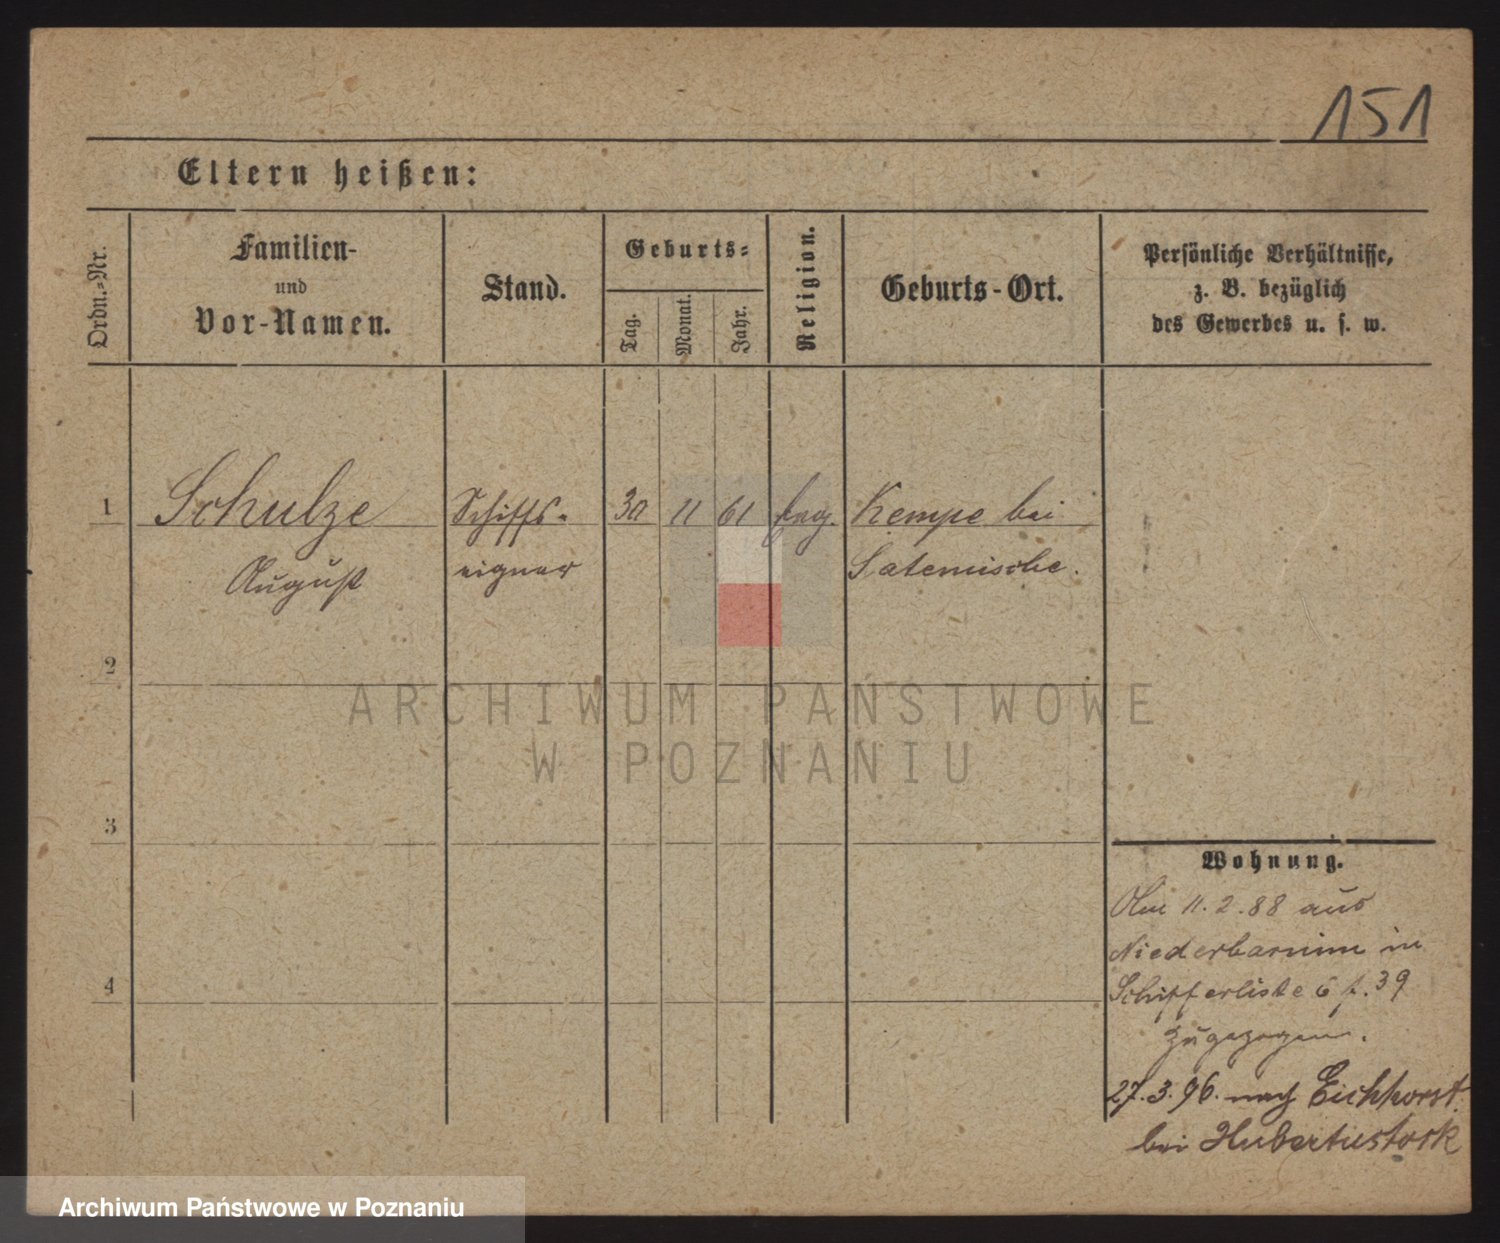 151
Eltern heißen:
Ordn.-Nr.
Familien-
und
Vor-Namen.
Stand.
Geburts-
Tag.
Monat.
Jahr.
Religion.
Geburts-Ort.
Persönliche Verhältnisse,
z. B. bezüglich
des Gewerbes u. s. w.
1
Schulze
August
Schiffs-
eigner
30
11
61
Kempe bei
2
3
4
Wohnung.
Am 11.2.88 aus
Niederbarnim in
Schifferliste 6 f. 39
zugezogen.
27.3.96. nach Eichhorst
bei Hubertustock
ARCHIWUM PAŃSTWOWE
W POZNANIU
Archiwum Państwowe w Poznaniu